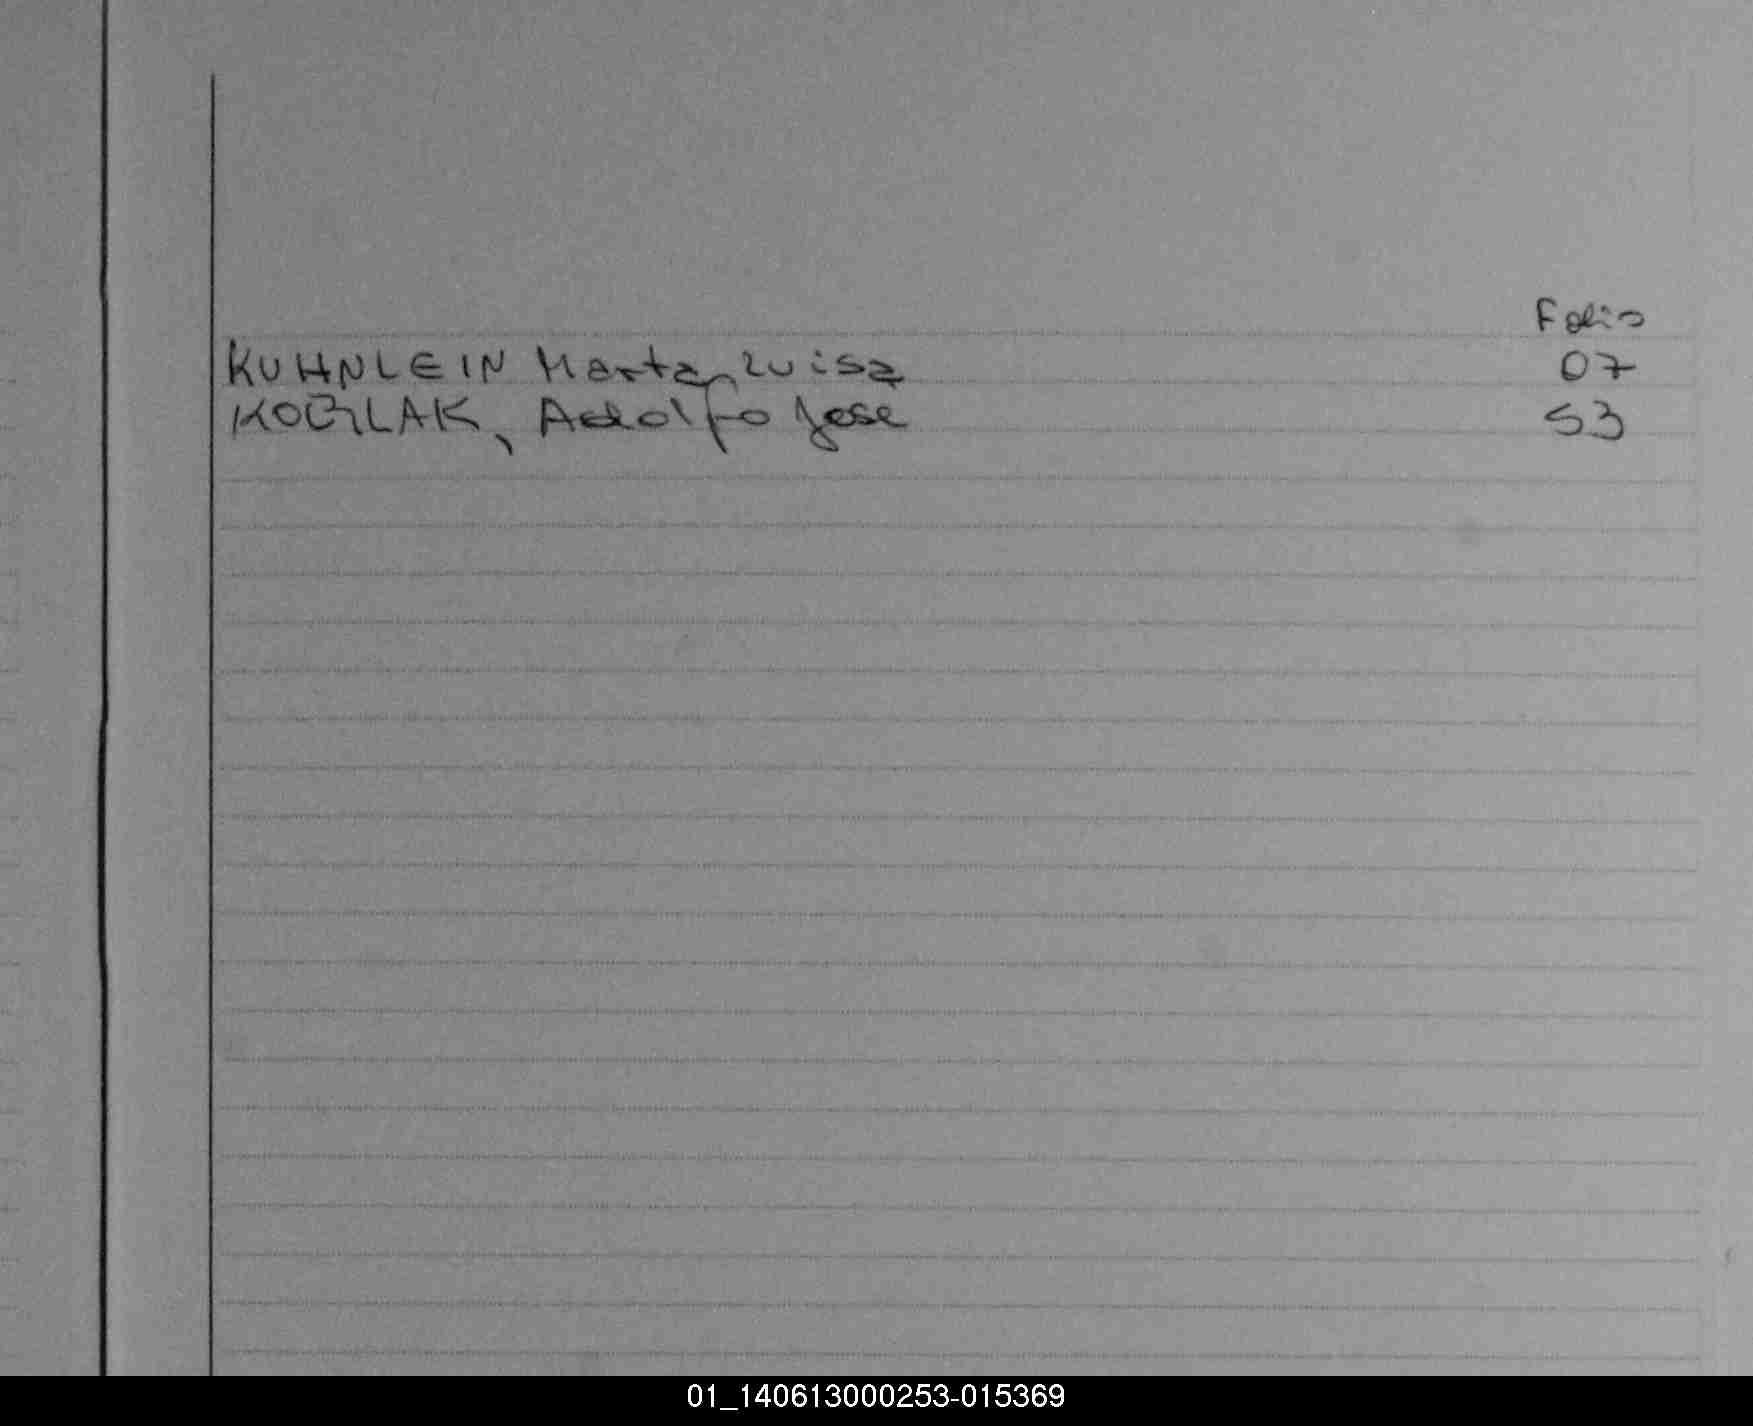 Folio
KUHNLEIN Marta Luisa 07
Adolfo Jose 53
01_140613000253-015369